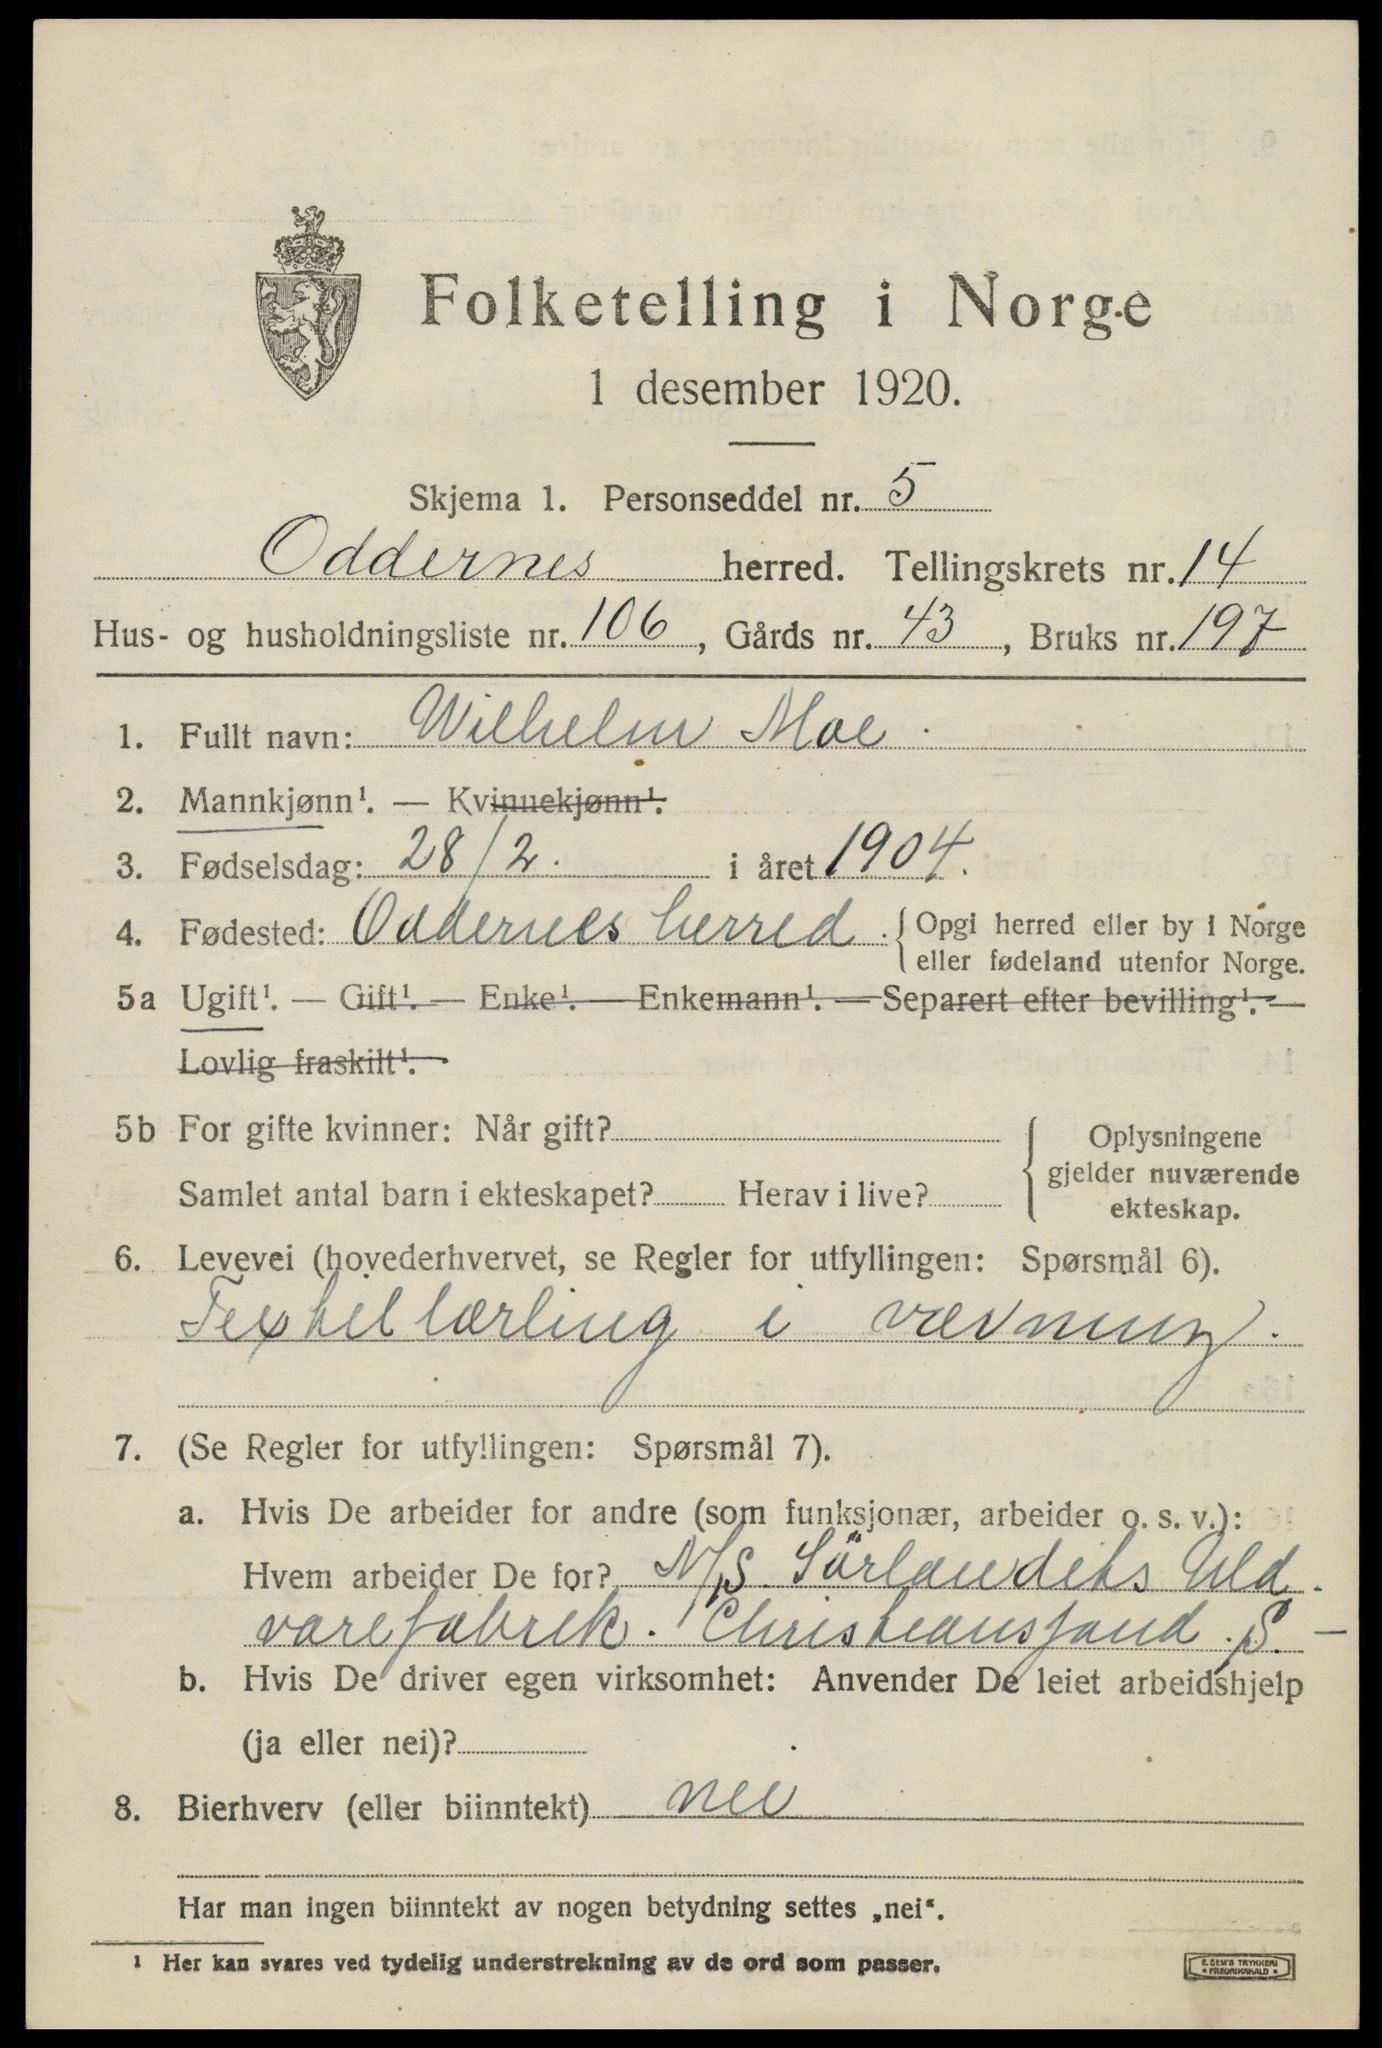 Folketelling i Norge
1 desember 1920.
Skjema 1. Personseddel nr. 5
Oddernes herred. Tellingskrets nr. 14
Hus- og husholdningsliste nr. 106, Gårds nr. 43, Bruks nr. 197
1. Fullt navn: Wilhelm Moe.
2. Mannkjønn¹. — Kvinnekjønn¹.
3. Fødselsdag: 28/2. i året 1904.
4. Fødested: Oddernes herred. Opgi herred eller by i Norge
eller fødeland utenfor Norge.
5a Ugift¹. — Gift¹. — Enke¹. — Enkemann¹. — Separert efter bevilling¹. —
Lovlig fraskilt¹.
5b For gifte kvinner: Når gift?
Samlet antal barn i ekteskapet? Herav i live?
Oplysningene
gjelder nuværende
ekteskap.
6. Levevei (hovederhvervet, se Regler for utfyllingen: Spørsmål 6).
Textillærling i vævning.
7. (Se Regler for utfyllingen: Spørsmål 7).
a. Hvis De arbeider for andre (som funksjonær, arbeider o. s. v.):
Hvem arbeider De for? A/S. Sörlandets Uld
varefabrik. Christiansand. S. —
b. Hvis De driver egen virksomhet: Anvender De leiet arbeidshjelp
(ja eller nei)?
8. Bierhverv (eller biinntekt) nei
Har man ingen biinntekt av nogen betydning settes „nei“.
¹ Her kan svares ved tydelig understrekning av de ord som passer.
E. SEM'S TRYKKERI
• FREDRIKSHALD •